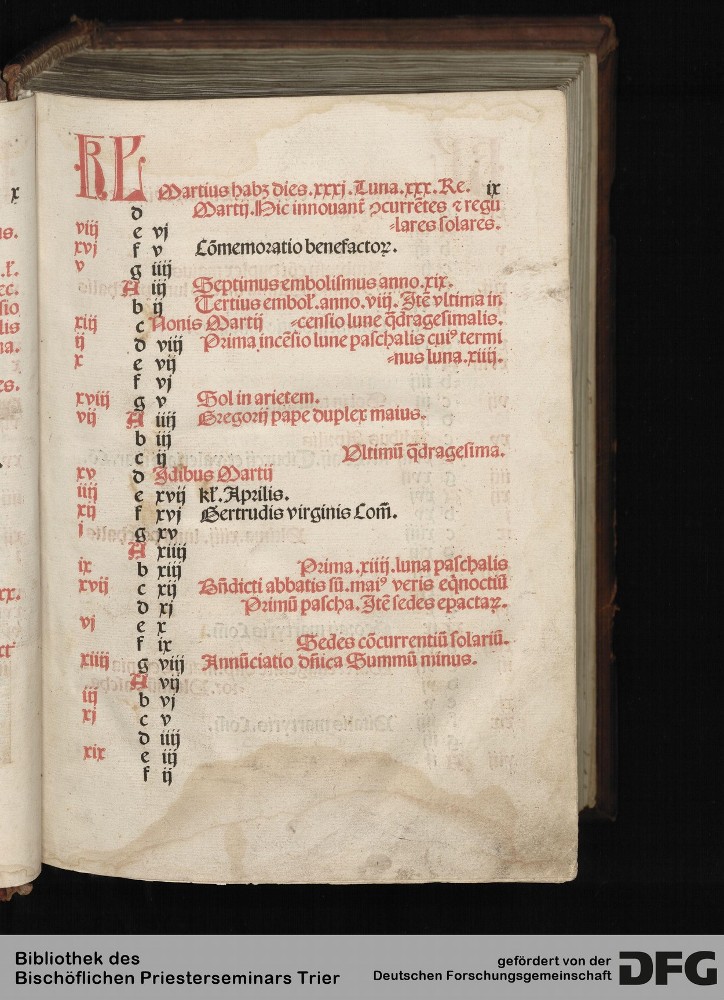 KL Martius habꝫ dies.xxxj.Luna.xxx.Re. ix
d Martij.Hic innouanť ↄcurrētes ⁊ regu
viij e vj -lares solares.
xvj f v Cōmemoratio benefactoꝝ.
v g iiij
A iij Septimus embolismus anno.xix.
b ij Tertius emboł.anno.viij.Itē vltima in
xiij c Nonis Martij -censio lune q̄dragesimalis.
ij d viij Prima incēsio lune paschalis cuiꝰ termi
x e vij -nus luna.xiiij.
f vj
xviij g v Sol in arietem.
vij A iiij Gregorij pape duplex maius.
b iij
c ij Vltimū q̄dragesima.
xv d Idibus Martij
iiij e xvij kł.Aprilis.
xij f xvj Gertrudis virginis Com̄.
j g xv
A xiiij
ix b xiij Prima.xiiij.luna paschalis
xvij c xij Bn̄dicti abbatis sū.maiꝰ veris eq̄noctiū
d xj Primū pascha.Itē sedes epactaꝝ.
vj e x
f ix Sedes cōcurrentiū solariū.
xiiij g viij Annūciatio dn̄ica Summū minus.
A vij
iij b vj
xj c v
d iiij
xix e iij
f ij
x
Bibliothek des
Bischöflichen Priesterseminars Trier
gefördert von der
Deutschen Forschungsgemeinschaft DFG